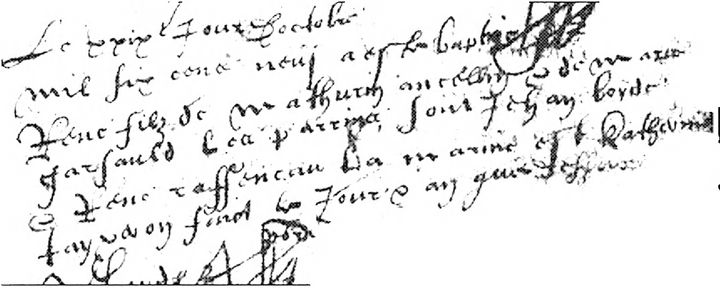 Le xxixe Jour doctobre
mil six cens neuf a este baptisé
Rene filz de mathurin ancelin & de marie
garsauld Les parrins sont Jehan borde
& Rene raffeneau La marine est Katherine
fait le Jour & an que dessus